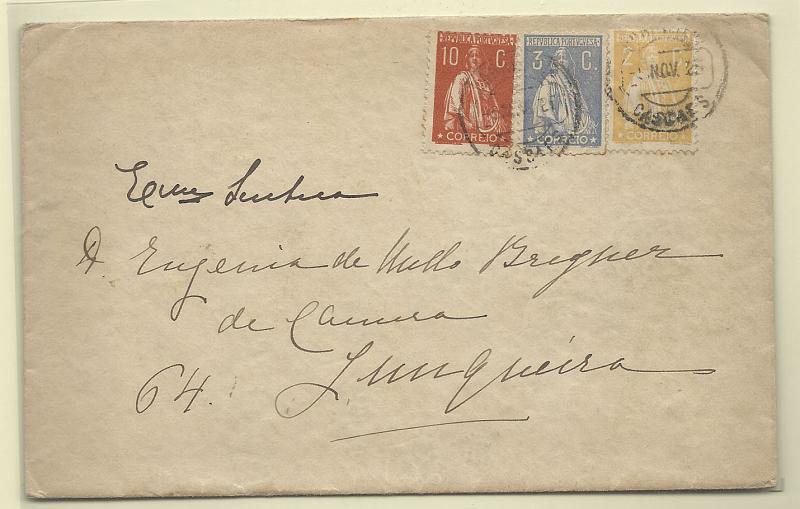 REPUBLICA PORTUGUESA
10 C.
CORREIO
REPUBLICA PORTUGUESA
3 C.
CORREIO
2
CORREIO
NOV. 23
CASCAES
Exma Senhora
D. Eugenia de Mello Bregner
de Camera
64. Junqueira